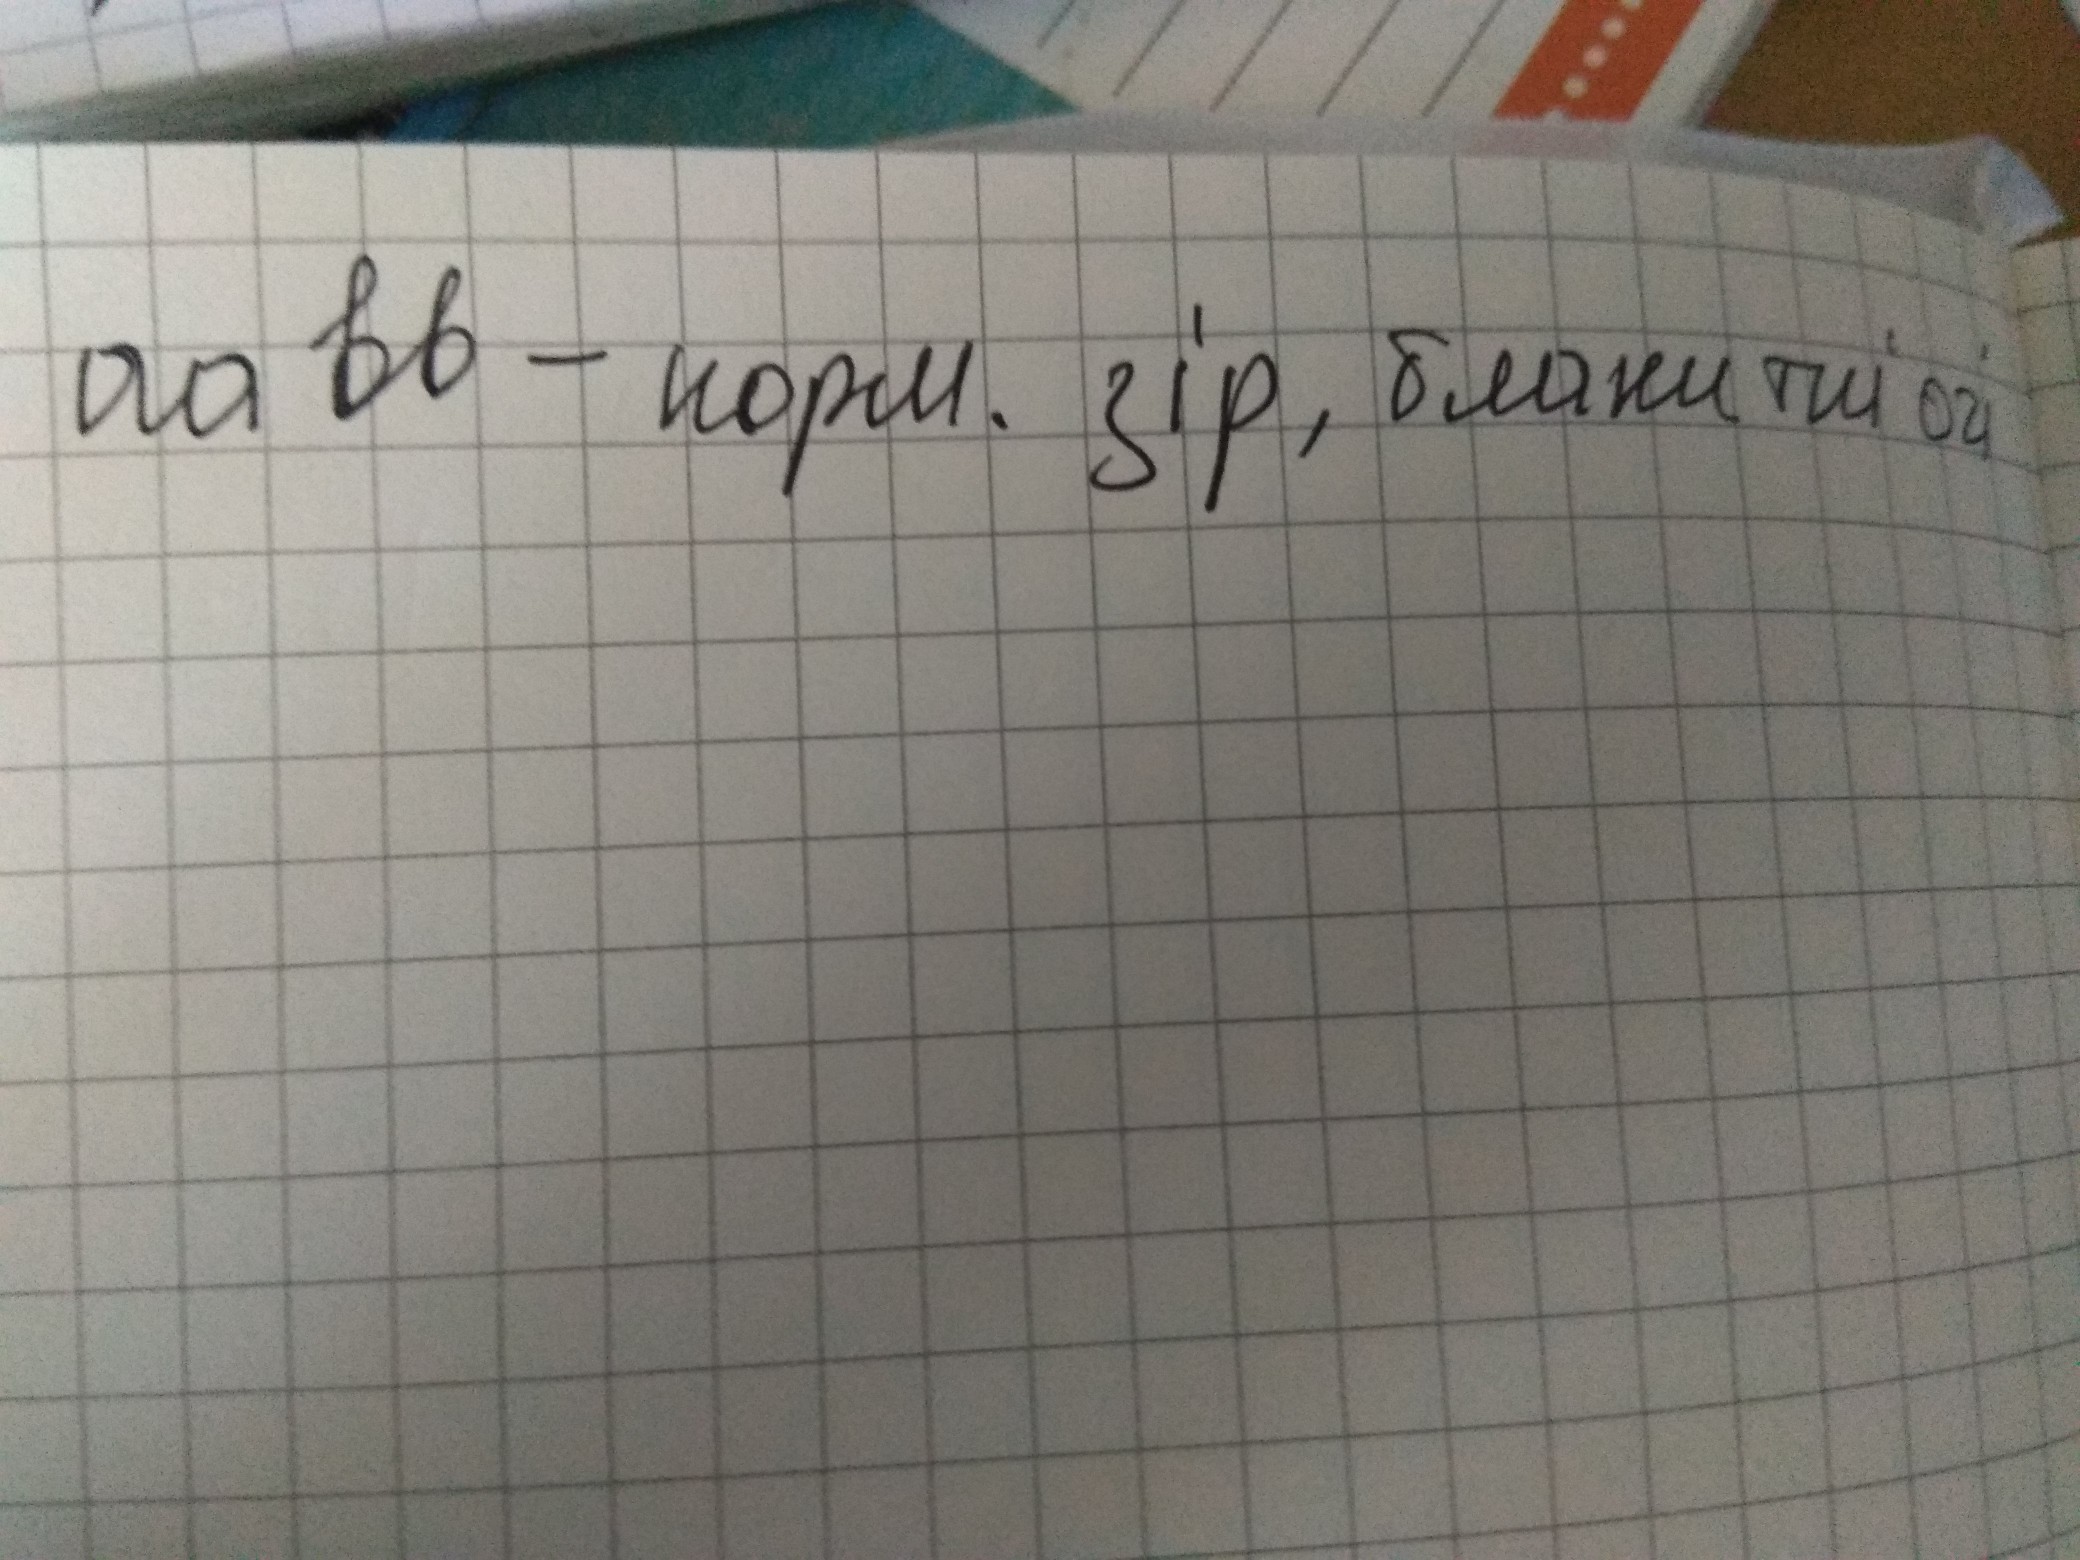 аа вв – норм. зір, блакитні очі